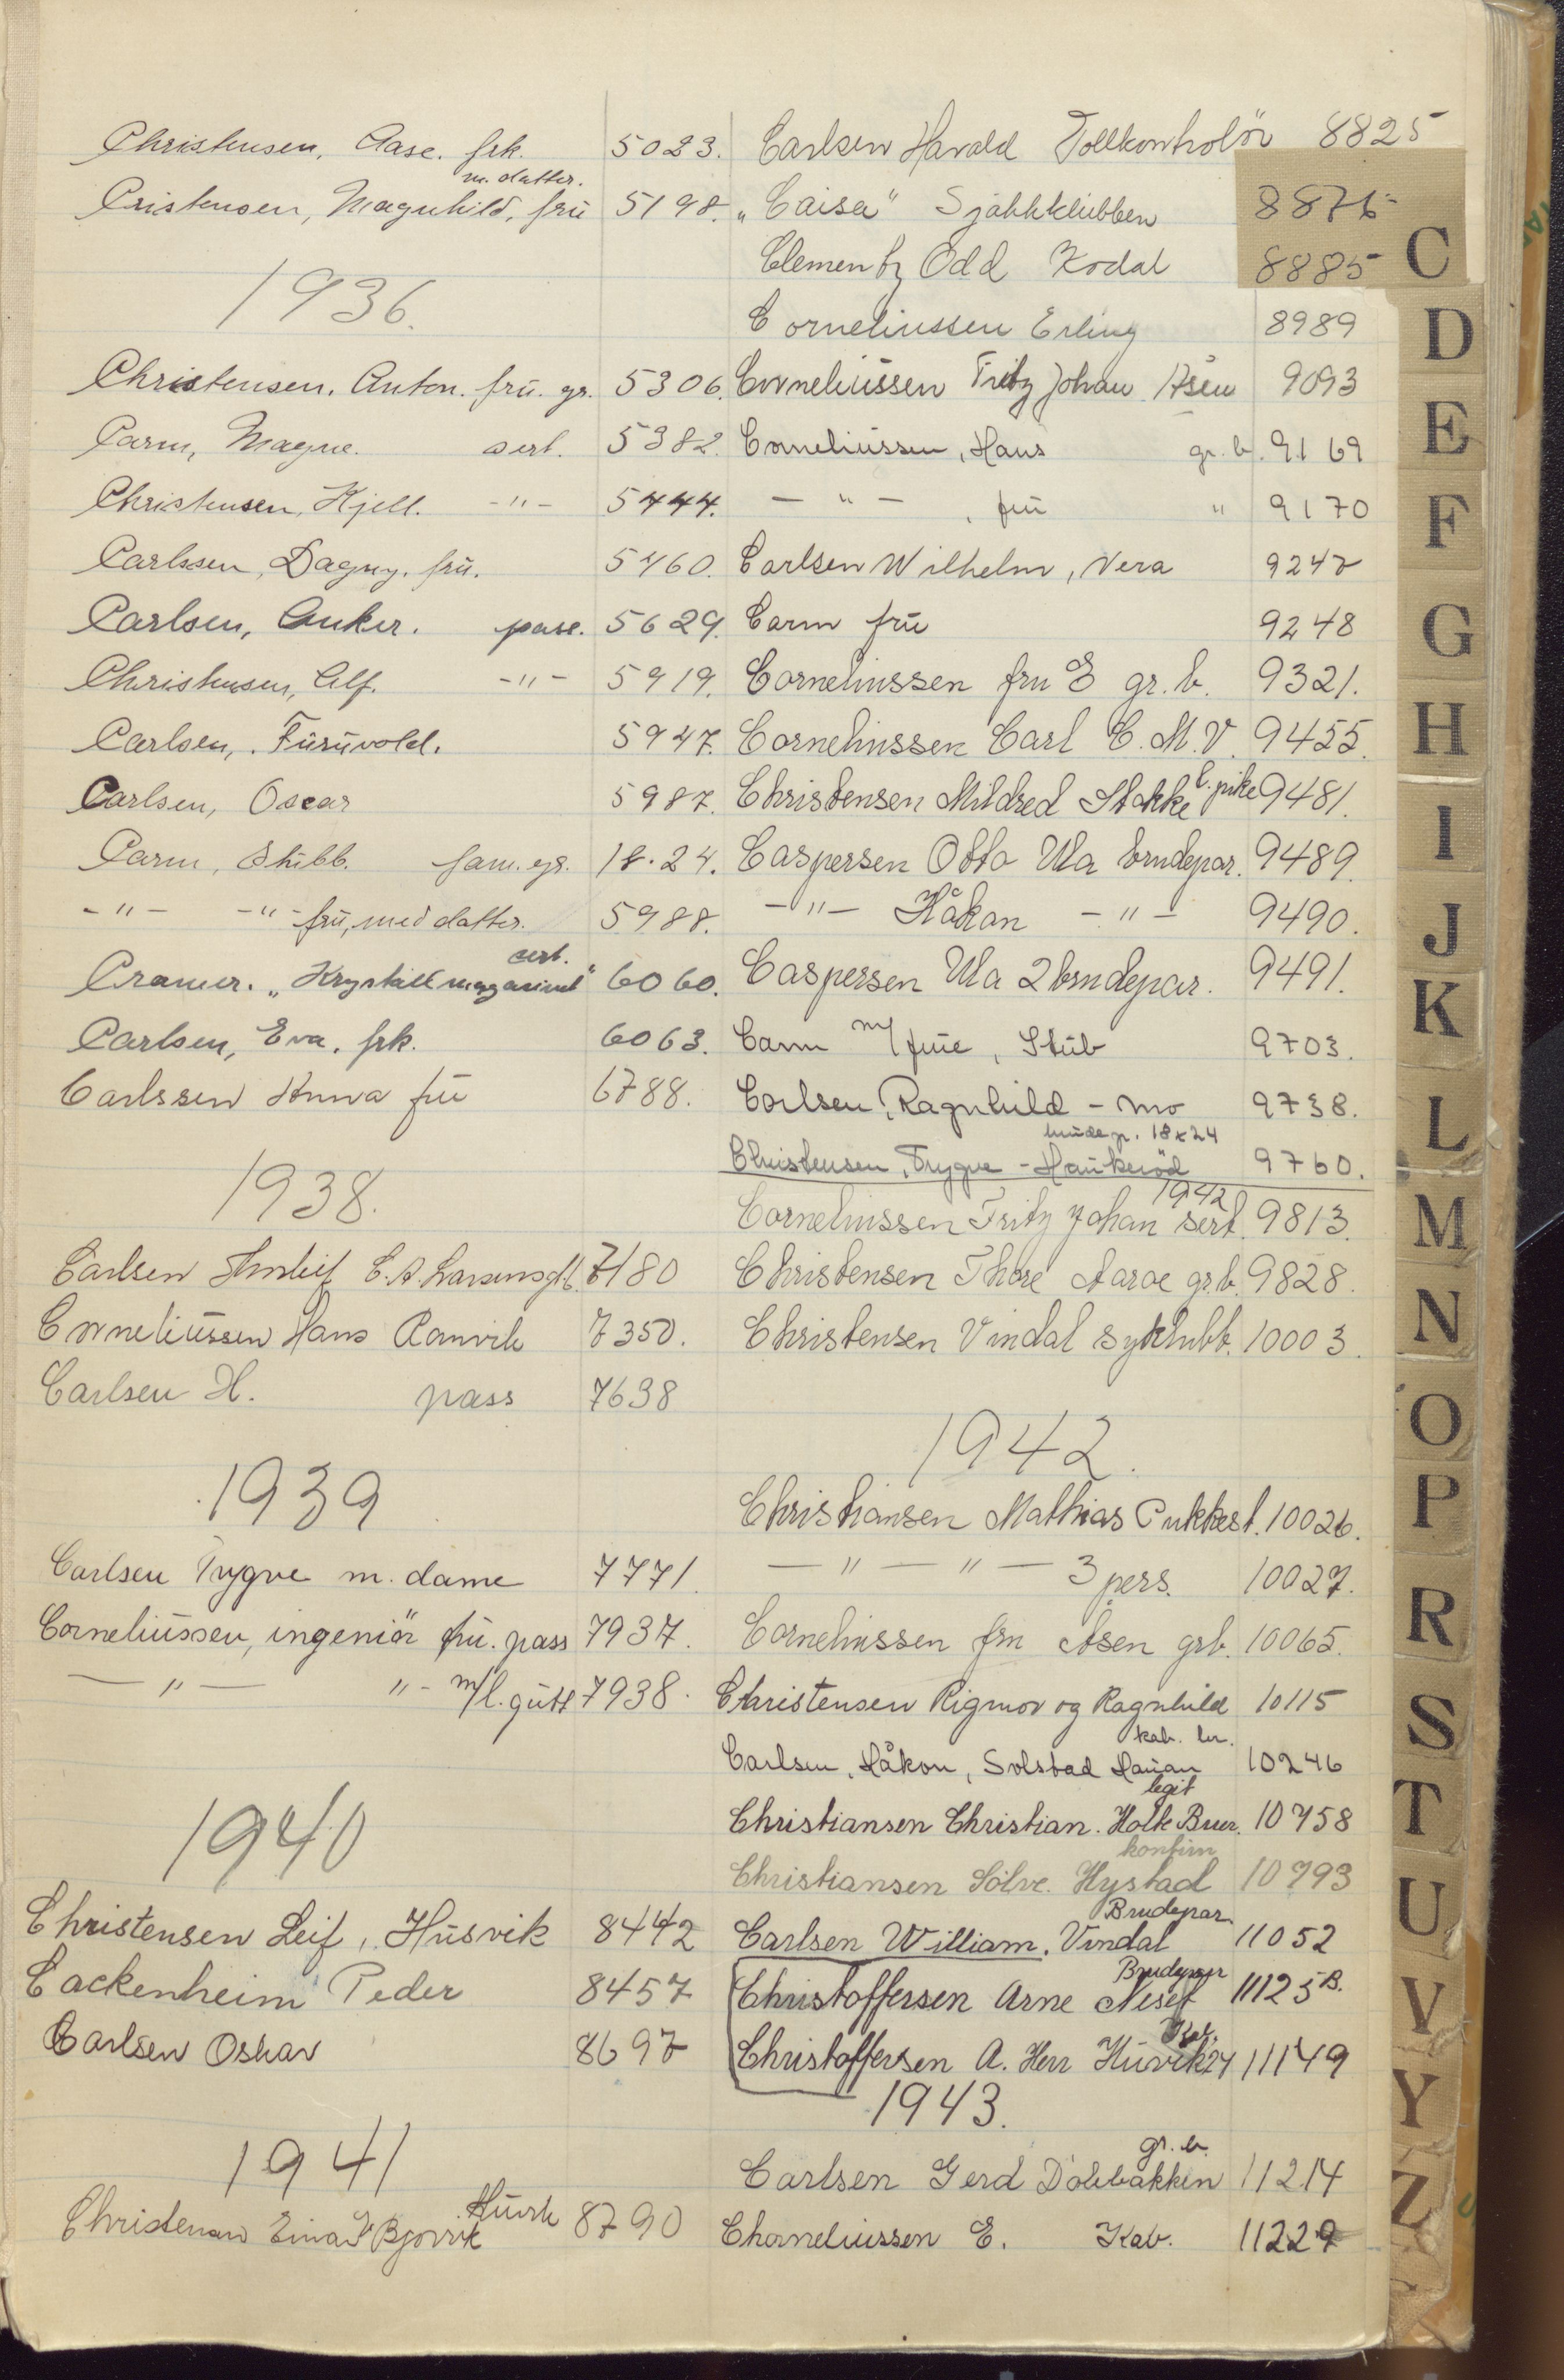 Christensen, Aase. frk. 5023.
m. datter.
Cristensen, Magnhild, frü 5198.
1936.
Christensen. Anton. frü. gr. 5306.
Carm, Magne. sert. 5382.
Christensen, Kjell. -"- 5444.
Carlssen, Dagny. frü. 5460.
Carlsen, Anker. pass. 5629.
Christensen, Alf. -"- 5919.
Carlsen, Fürüvold. 5947.
Carlsen, Oscar 5987.
Carm, Stübb. fam. gr. 18.24.
-"- -"- frü, med datter. 5988.
sert.
Cramer. „Krystallmagasinet" 6060.
Carlsen, Eva. frk. 6063.
Carlssen Anna frü 6788.
1938.
Carlsen C.A. Larsensgt. 7180
Corneliüssen Hans Ranvik 7350.
Carlsen H. pass 7638
1939
Carlsen Trygve m. dame 7771.
Corneliüssen, ingeniör frü. pass 7937.
— " — "- m/l. gütt 7938.
1940
Christensen Leif, Hüsvik 8442
Cackenheim Peder 8457
Carlsen Oskar 8697
1941
Christensen Einar Bjorvik 8790
Carlsen Harald Tollkontrolör 8825
„Caisa" Sjakkklübben 8876
Clementz Odd Kodal 8885
Corneliussen Erling 8989
Corneliüssen Fritz Johan Åsen 9093
Corneliüssen, Hans gr. b. 9169
— " — , frü " 9170
Carlsen Wilhelm, Vera 9247
Carm frü 9248
Corneliussen fru E gr. b. 9321.
Corneliussen Carl C. M. V. 9455.
Christensen Mildred Stokke l. pike 9481.
Caspersen Otto Ula brudepar. 9489.
-"- Håkon -"- 9490.
Caspersen Ula 2 brudepar. 9491.
Carm m/ früe, Stüb 9703.
Carlsen, Ragnhild - Mo 9738.
brüdep. 18x24
Christensen, Trygve - Haükeröd 9760.
1942
Corneliussen Fritz Johan sert. 9813.
Christensen Thore Aaroe gr.b. 9828.
Christensen Vindal syklubb. 10003.
1942.
Christiansen Mathias Pukkest. 10026.
— " — " — 3 pers. 10027.
Corneliussen fru Åsen grb. 10065.
Christensen Rigmor og Ragnhild 10115
kab. br.
Carlsen, Håkon, Solstad Haüan 10246
legit
Christiansen Christian. Holte Bruer. 10758
konfirm
Christiansen Sölve. Hystad 10793
Brudepar
Carlsen William. Vindal 11052
Brudepar
Christoffersen Arne Neset 11125B.
Kab.
Christoffersen A. Herr Hüvik 24 11149
1943.
gr. b.
Carlsen Gerd Dölebakken 11214
Chorneliüssen E. Kab. 11229
C
D
E
F
G
H
I
J
K
L
M
N
O
P
R
S
T
U
V
Y
Z